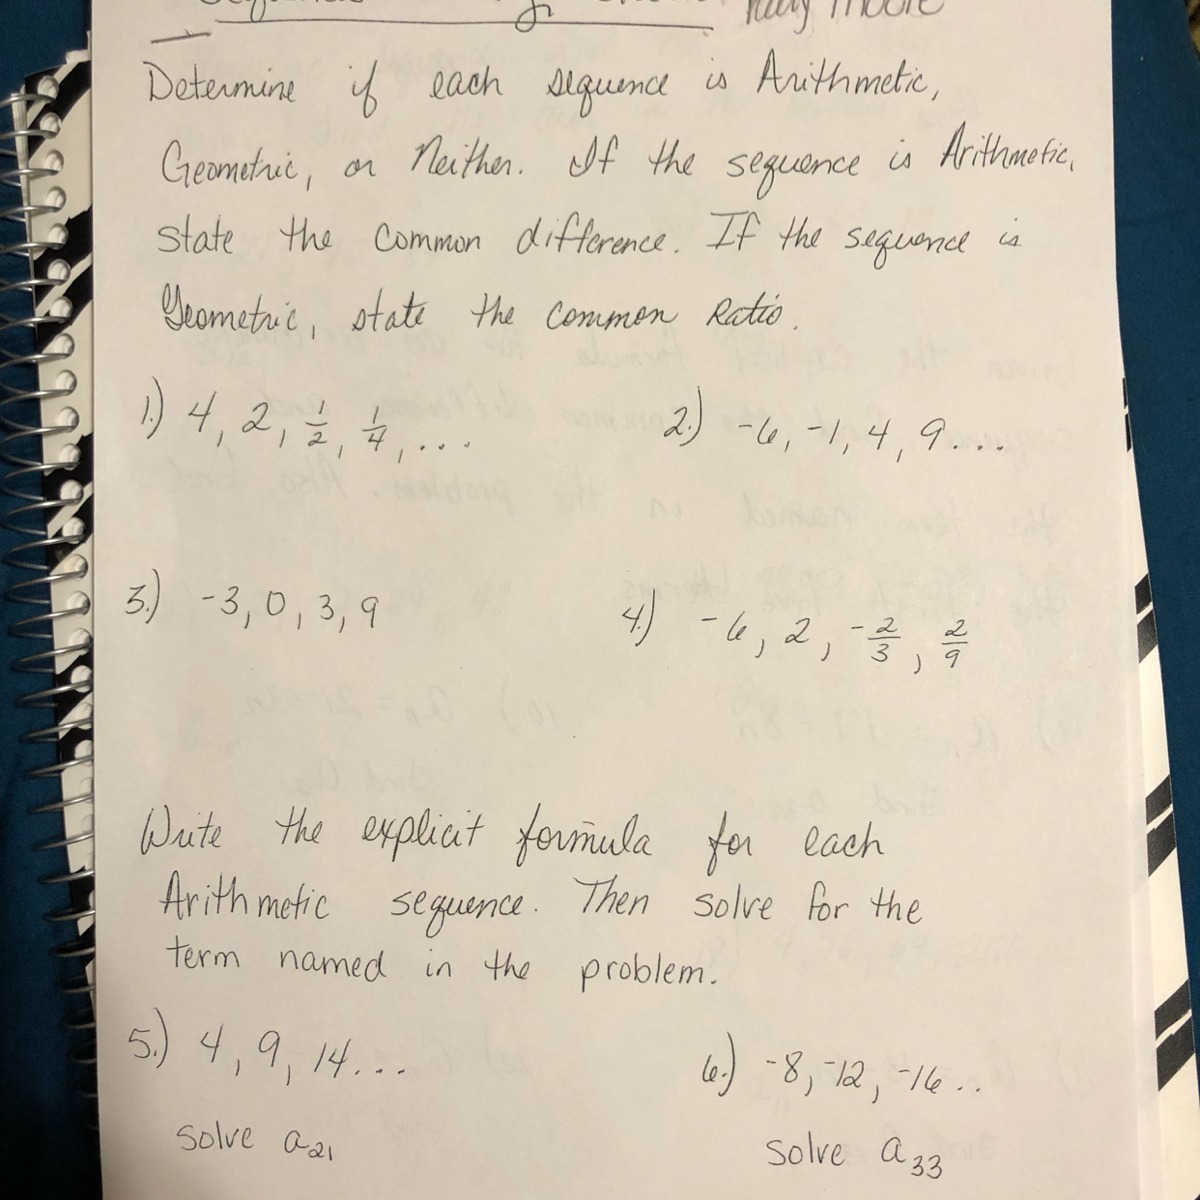 Determine if each sequence is Arithmetic,
Geometric, or Neither. If the sequence is Arithmetic,
state the common difference. If the sequence is
Geometric, state the common Ratio.
1.) 4, 2, 1/2, 1/4, ...
2.) -6, -1, 4, 9...
3.) -3, 0, 3, 9
4.) -6, 2, -2/3, 2/9
Write the explicit formula for each
Arithmetic sequence. Then solve for the
term named in the problem.
5.) 4, 9, 14...
6.) -8, -12, -16..
solve a21
solve a33